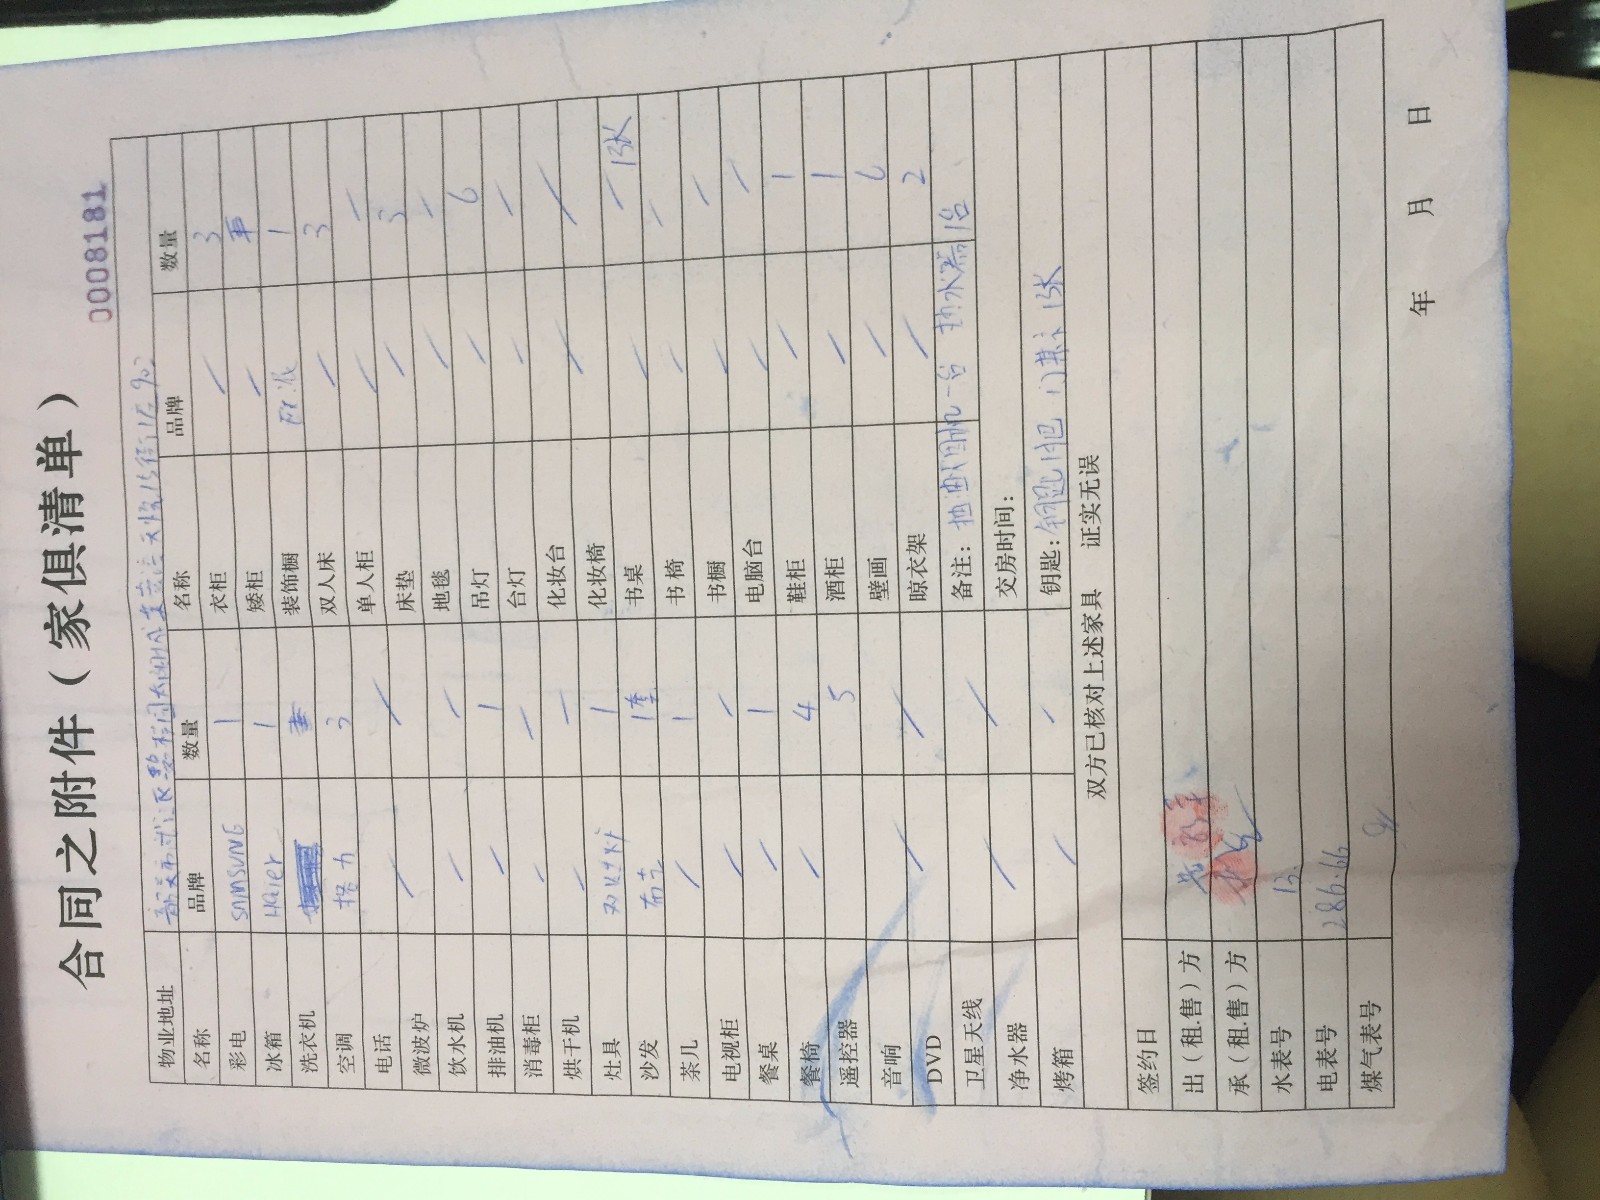 合同之附件（家俱清单）
0008181
物业地址
名称 品牌 数量 名称 品牌 数量
彩电 SAMSUNG 1 衣柜 / 3
冰箱 Haier 1 矮柜 /
洗衣机 装饰橱 1
空调 格力 3 双人床 / 3
电话 / / 单人柜 / /
微波炉 / / 床垫 / 3
饮水机 / 1 地毯 / /
排油机 / / 吊灯 / 6
消毒柜 / / 台灯 / /
烘干机 化妆台 / /
灶具 1 化妆椅 / 1张
沙发 布艺 1套 书桌 / /
茶几 / 1 书椅 / /
电视柜 / / 书橱 / /
餐桌 / 1 电脑台 / /
餐椅 / 4 鞋柜 / 1
遥控器 5 酒柜 / 1
音响 / / 壁画 / 6
DVD 晾衣架 / 2
卫星天线 / / 备注：抽油烟机一台 热水器1台
净水器 / / 交房时间：
烤箱 钥匙：钥匙1把 门禁卡1张
双方已核对上述家具 证实无误
签约日
出（租.售）方
承（租.售）方
水表号 12
电表号 286.66
煤气表号
年 月 日